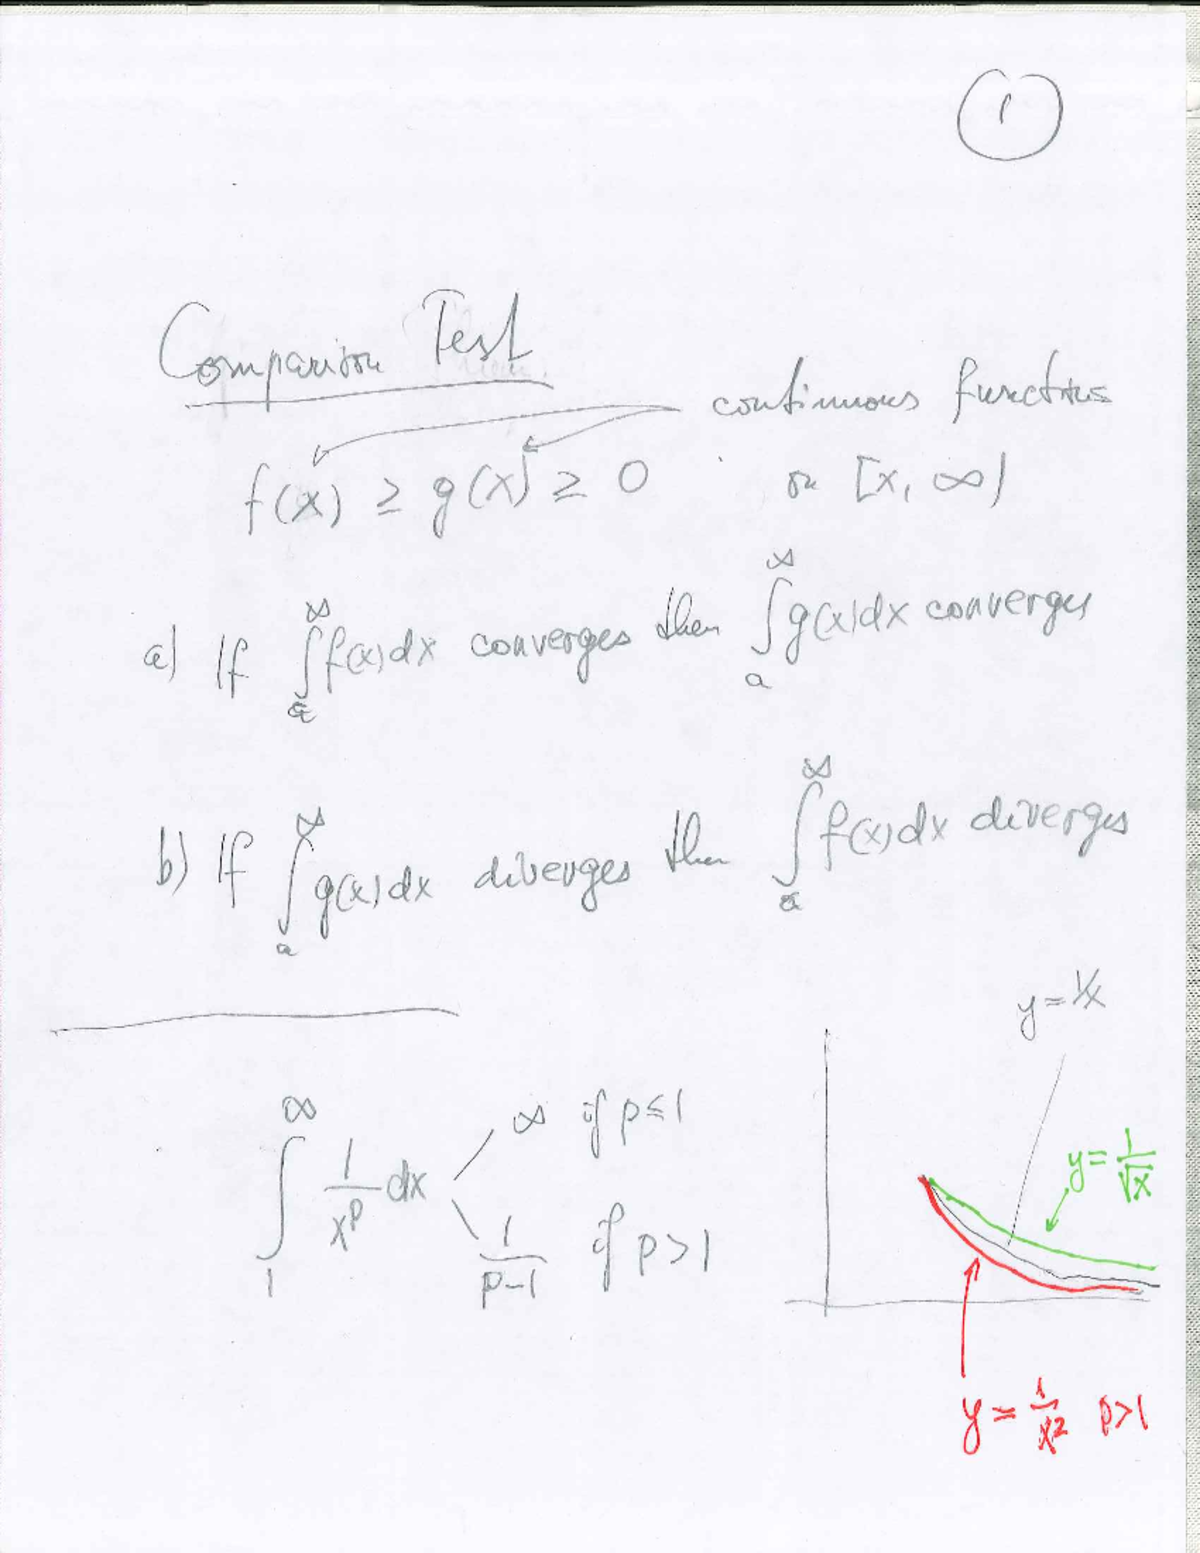 1
Comparison Test
continuous functions
f(x) ≥ g(x) ≥ 0 on [x, ∞)
a) If ∫_a^∞ f(x)dx converges then ∫_a^∞ g(x)dx converges
b) If ∫_a^∞ g(x)dx diverges then ∫_a^∞ f(x)dx diverges
y = 1/x
∫_1^∞ 1/x^p dx
∞ if p ≤ 1
1/(p-1) if p > 1
y = 1/√x
y = 1/x² p>1